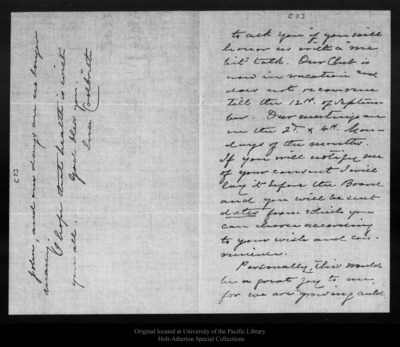 C33
to ask you if you will
honor us with a
talk. Our Club is
now in vacation and
does not reconvene
till the 12th of Septem
ber. Our meetings are
on the 2d & 4th Mon-
days of the months.
If you will notify me
of your consent I will
lay it before the Board
and you will be sent
dates from which you
can choose according
to your wish and con-
venience.
Personally, this would
be a great joy to me,
for we are growing old
John, and our days are no longer
many.
I hope that health is with
you all. God bless you.
C33
Original located at University of the Pacific Library
Holt-Atherton Special Collections